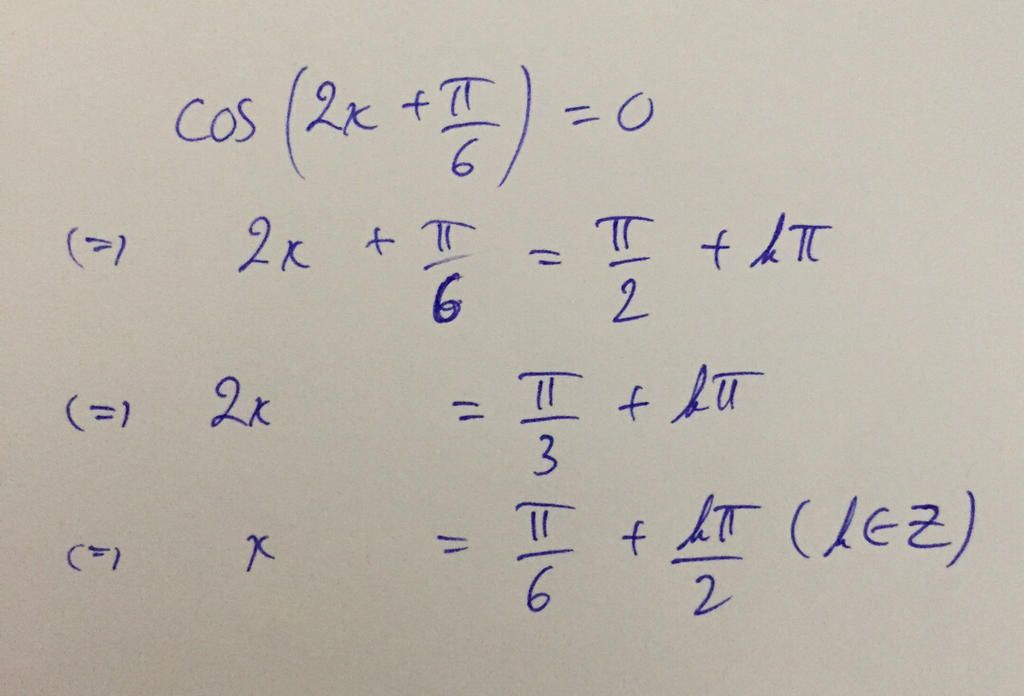 cos (2x + π/6) = 0
(=) 2x + π/6 = π/2 + kπ
(=) 2x = π/3 + kπ
(=) x = π/6 + kπ/2 (k∈Z)